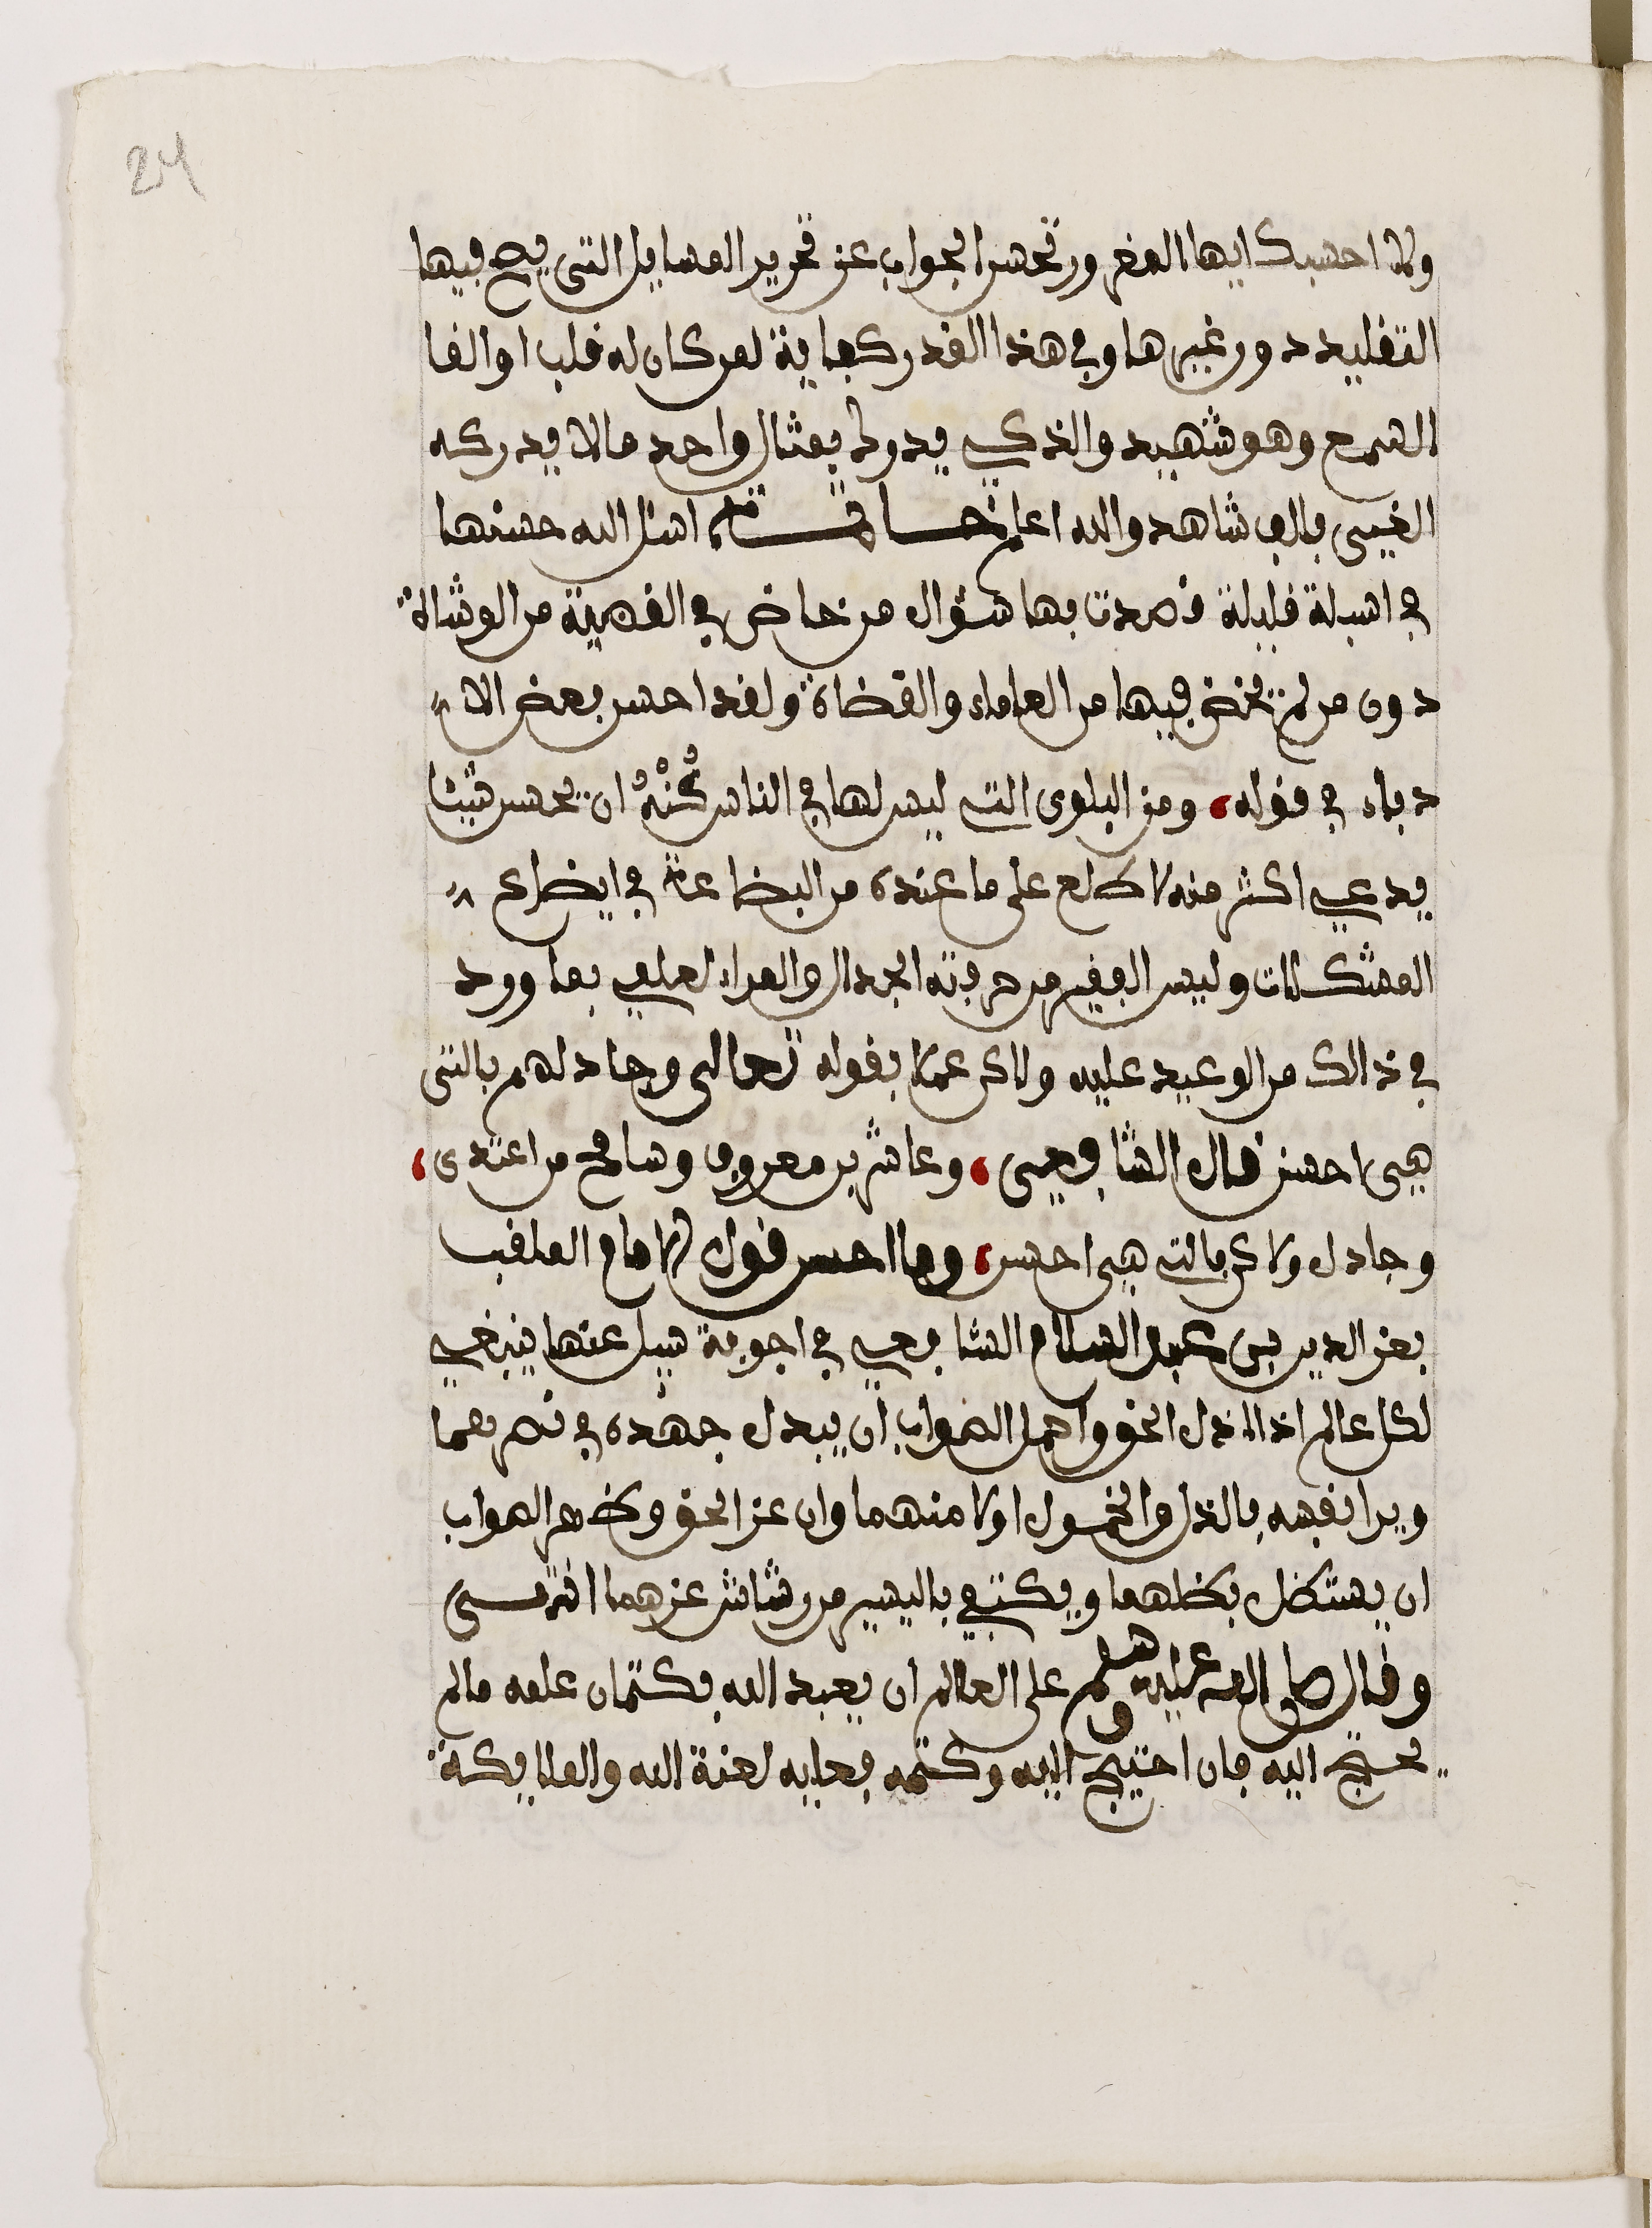 24
ولا احسبك ايها المغرور تحسن الجواب عن تحرير المسايل التي يصح فيها
التقليد دون غيرها وفي هذا القدر كفاية لمن كان له قلب او القا
السمع وهو شهيد والذكي يدرك بمثال واحد مالا يدركه
الغبي بالف شاهد والله اعلم خـاتـمـة اسئل الله حسنها
في اسيلة قليلة قصدت بها سؤال من خاض في القضية من الوشاة
دون من لم يخض فيها من العلماء والقضاة ولقد احسن بعض الا
دباء في قوله، ومن البلوى التي ليس لها في الناس كُنْهُ ان يحسن شيئا
يدعي اكثر منه لاطلع على ما عنده من البضاعة في ايضاح
المشكلات وليس الفقير من حرفته الجدال والمراء لعلمي بما ورد
في ذالك من الوعيد عليه ولاكن عملا بقوله تعالى وجادلهم بالتي
هي احسن قال الشافعي، وعاشر بمعروف وسامح من اعتدى،
وجادل ولاكن بالتي هي احسن، وما احسن قول الامام الملقب
بعز الدين بن عبد السلام الشافعي في اجوبة سيل عنها ينبغي
لكل عالم اذا اذل الحق واهمل الصواب ان يبذل جهده في نصرهما
ويرا نفسه بالذل والخمول اولا منهما وان عز الحق وظهر الصواب
ان يستظل بظلهما ويكتفي باليسير من رشاش عزهما انتهى
وقال صلى الله عليه وسلم على العالم ان يعبد الله بكتمان علمه مالم
يحتج اليه فان احتيج اليه وكتمه فعليه لعنة الله والملايكة